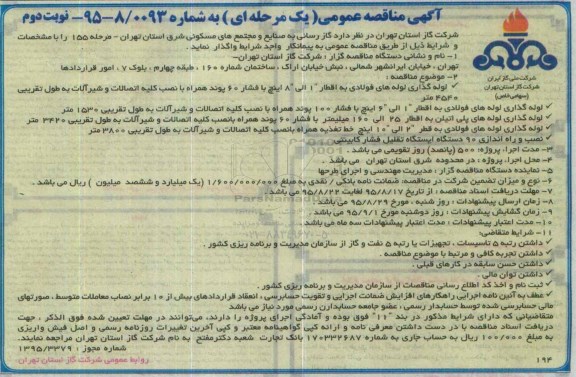 آگهی مناقصه عمومی( یک مرحله ای ) به شماره ۸/۰۰۹۳-۹۵- نوبت دوم
شرکت گاز استان تهران در نظر دارد گاز رسانی به صنایع و مجتمع های مسکونی شرق استان تهران - مرحله ۱۵۵ را با مشخصات
و شرایط ذیل از طریق مناقصه عمومی به پیمانکار واجد شرایط واگذار نماید .
شرکت ملی گاز ایران
شرکت گاز استان تهران
(سهامی خاص)
۱- نام و نشانی دستگاه مناقصه گزار : شرکت گاز استان تهران-
تهران، خیابان ایرانشهر شمالی ، نبش خیابان اراک ، ساختمان شماره ۱۶۰ ، طبقه چهارم ، بلوک ۷ ، امور قراردادها
۲- موضوع مناقصه :
لوله گذاری لوله های فولادی به اقطار "۱ الی "۸ اینچ با فشار ۶۰ پوند همراه با نصب کلیه اتصالات و شیرآلات به طول تقریبی
۴۵۴۰ متر
لوله گذاری لوله های فولادی به اقطار "۱ الی "۶ اینچ با فشار ۱۰۰ پوند همراه با نصب کلیه اتصالات و شیرآلات به طول تقریبی ۱۵۳۰ متر
لوله گذاری لوله های پلی اتیلن به اقطار ۲۵ الی ۱۶۰ میلیمتر با فشار ۶۰ پوند همراه بانصب کلیه اتصالات و شیرآلات به طول تقریبی ۳۴۲۰ متر
لوله گذاری لوله های فولادی به قطر "۲ الی "۱۰ اینچ خط تغذیه همراه بانصب کلیه اتصالات و شیرآلات به طول تقریبی ۳۸۰۰ متر
نصب و راه اندازی ۹۰ دستگاه ایستگاه تقلیل فشار کابینتی
۳- مدت اجرا، پروژه: ۵۰۰ (پانصد) روز تقویمی می باشد .
۴- محل اجرا، پروژه : در محدوده شرق استان تهران می باشد .
۵- نماینده دستگاه مناقصه گزار : مدیریت مهندسی و اجرای طرحها
۶- نوع و میزان تضمین شرکت در مناقصه: ضمانت نامه بانکی / نقدی به مبلغ ۱/۶۰۰/۰۰۰/۰۰۰ (یک میلیارد و ششصد میلیون ) ریال می باشد .
۷- مهلت دریافت اسناد مناقصه : از تاریخ ۹۵/۸/۱۷ لغایت ۹۵/۸/۲۲ می باشد
۸- زمان ارسال پیشنهادات : روز شنبه ، مورخ ۹۵/۸/۲۹ می باشد .
۹- زمان گشایش پیشنهادات : روز دوشنبه مورخ ۹۵/۹/۱ می باشد
۱۰- مدت اعتبار پیشنهادات : مدت اعتبار پیشنهادات سه ماه می باشد .
۱۱- شرایط متقاضی:
داشتن رتبه ۵ تاسیسات ، تجهیزات یا رتبه ۵ نفت و گاز از سازمان مدیریت و برنامه ریزی کشور .
داشتن تجربه کافی و مرتبط با موضوع مناقصه .
داشتن حسن سابقه در کارهای قبلی .
داشتن توان مالی .
ثبت نام و اخذ کد اطلاع رسانی مناقصات از سازمان مدیریت و برنامه ریزی کشور .
عطف به آئین نامه اجرایی راهکارهای افزایش ضمانت اجرایی و تقویت حسابرسی ، انعقاد قراردادهای بیش از ۱۰ برابر نصاب معاملات متوسط ، صورتهای
مالی حسابرسی شده توسط حسابدار رسمی ، عضو جامعه حسابدارن رسمی مورد نیاز می باشد
متقاضیانی که دارای شرایط مذکور در بند "۱۱" فوق بوده و آمادگی اجرای پروژه را دارند، می‌توانند در مهلت تعیین شده فوق الذکر ، جهت
دریافت اسناد مناقصه با در دست داشتن معرفی نامه و ارائه کپی گواهینامه معتبر و کپی آخرین تغییرات روزنامه رسمی و اصل فیش واریزی
به مبلغ ۱۰۰/۰۰۰ ریال به حساب جاری به شماره ۱۷۰۳۳۲۶۸۷ بانک تجارت شعبه دکترمفتح به نام شرکت گاز استان تهران مراجعه نمایند.
شماره مجوز : ۱۳۹۵/۳۳۷۹
روابط عمومی شرکت گاز استان تهران
۱۹۴